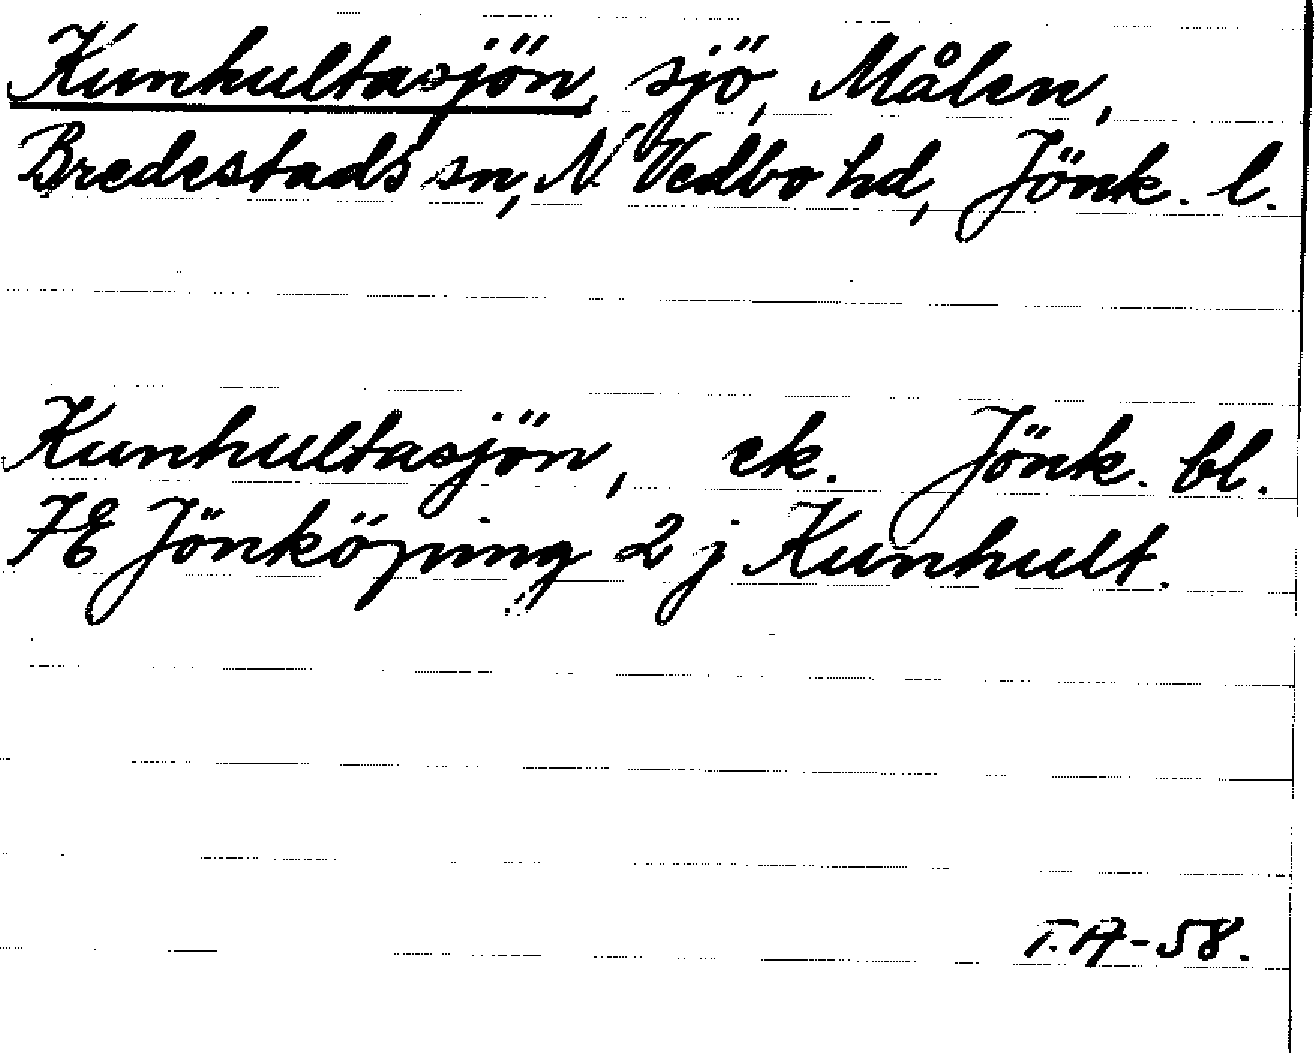 Kunhultasjön, sjö, Målen,
Bredestads sn, N. Vedbo hd, Jönk. l.
Kunhultasjön, ek. Jönk. bl.
7E Jönköping 2 j Kunhult.
T.A-58.